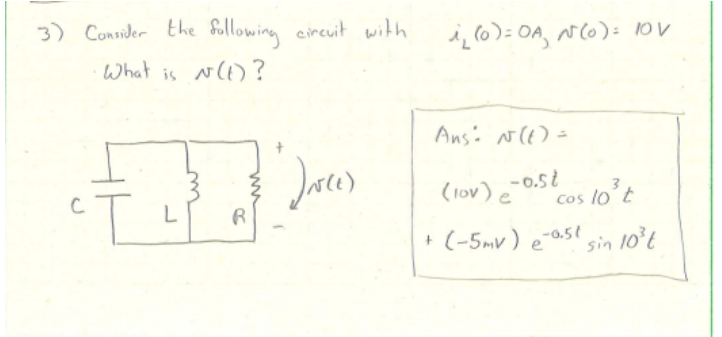 3) Consider the following circuit with i_L(0)=0A, v(0)= 10V
What is v(t)?
Ans: v(t) =
(10V) e^-0.5t cos 10^3 t
+ (-5mV) e^-0.5t sin 10^3 t
+
v(t)
C L R
-